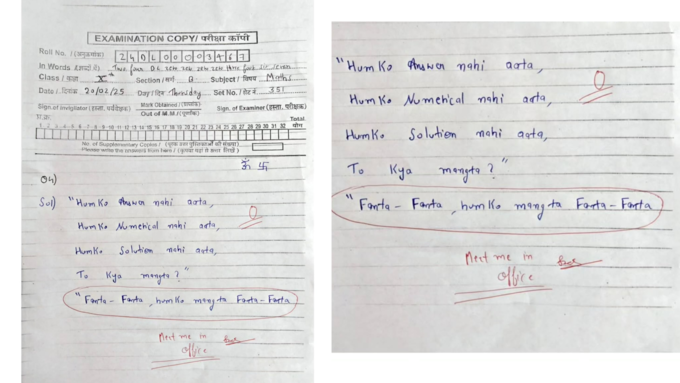 EXAMINATION COPY/ परीक्षा कॉपी
Roll No. / (अनुक्रमांक) 240600003467
In Words / (शब्दों में)
Class / कक्षा X Section / वर्ग B Subject / विषय Maths
Date / दिनांक 20/02/25 Day / दिन Thursday Set No. / सेट नं 351
Sign of Invigilator Mark Obtained / Sign. of Examiner
Out of M.M./
1 2 3 4 5 6 7 8 9 10 11 12 13 14 15 16 17 18 19 20 21 22 23 24 25 26 27 28 29 30 31 32 Total
No. of Supplementary Copies /
Please write the answers from here /
Sol)
"HumKo Answer nahi aata,
HumKo Numerical nahi aata,
0
HumKo Solution nahi aata,
To Kya mangta?"
"Fanta - Fanta, humKo mangta Fanta-Fanta
Meet me in
office
"HumKo Answer nahi aata,
0
HumKo Numerical nahi aata,
HumKo Solution nahi aata,
To Kya mangta?"
"Fanta - Fanta, humKo mangta Fanta-Fanta
Meet me in
office